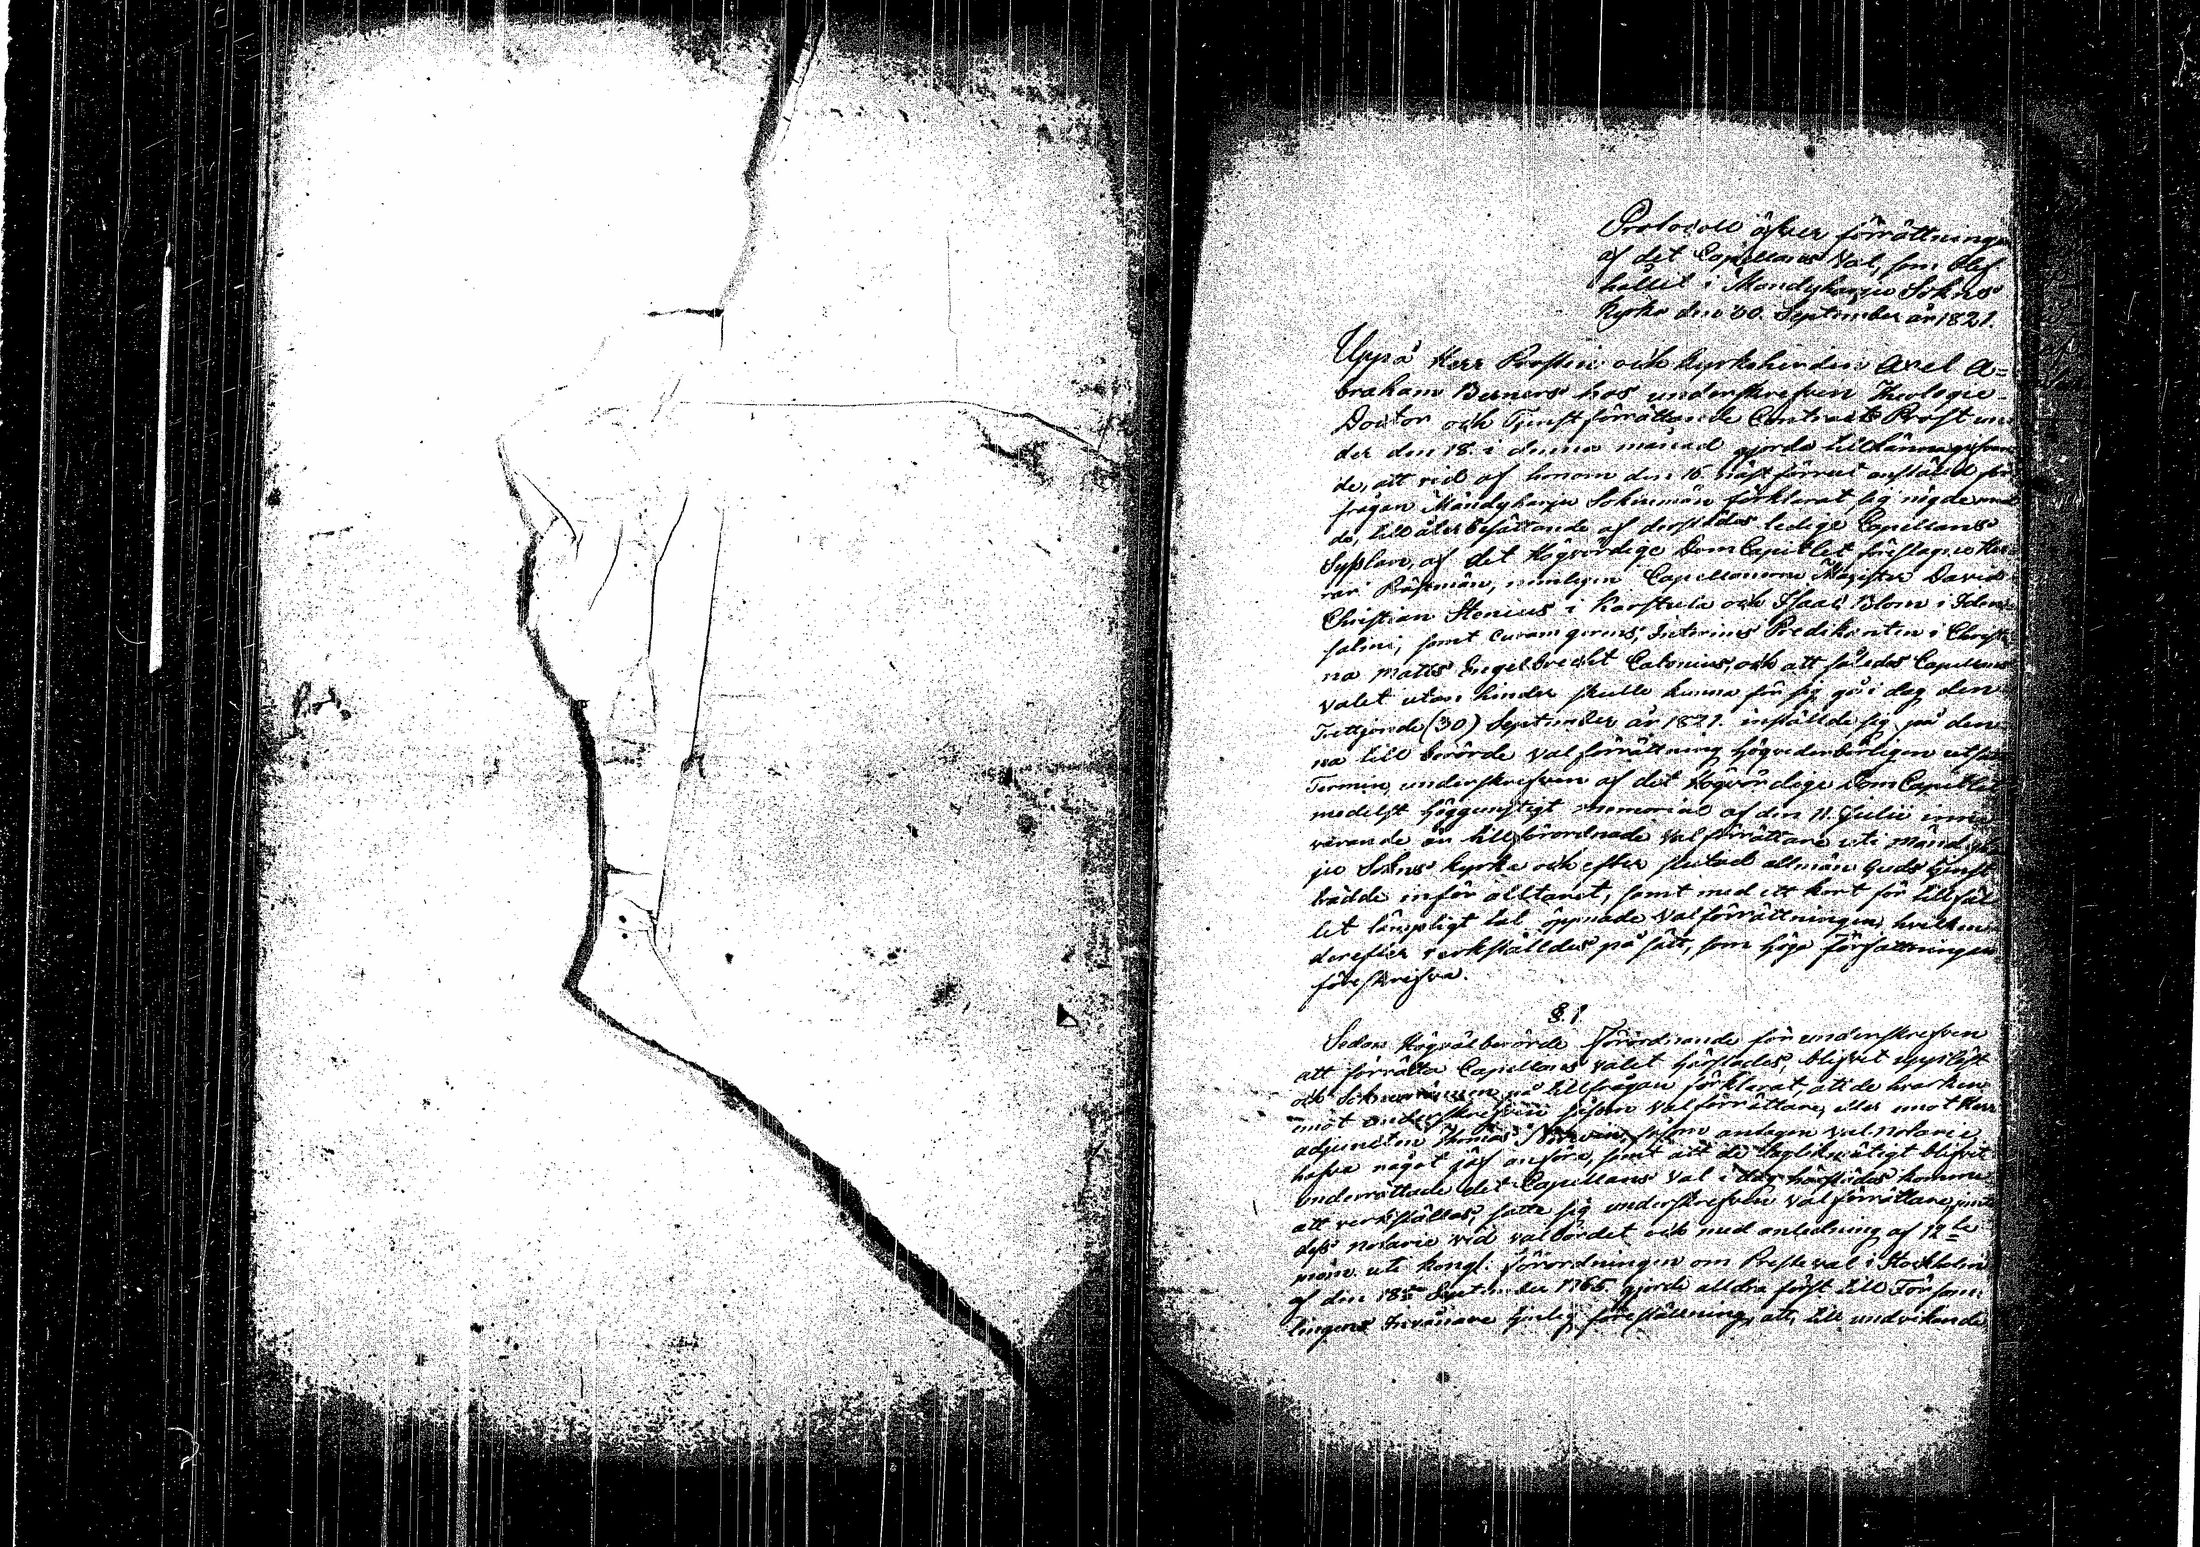 Protocoll öfver förrättningen
af det Capellans Val, som blef
hållit i Mändyharju Sokns
Kyrka den 30. September år 1821.
Uppå Herr Prosten och Kyrkoherden Axel A-
braham Berners hos underskrefven Theologie
Doctor och Tjenstförrättande Contracts Prost un-
der den 18. i denna månad gjorda tillkännagifvan-
de, att vid af honom den 16. näst förrut anstäld för-
frågan Mändyharju Soknemän förklarat sig nögde med
de, till återbesättande af derstädes ledige Capellans
Sysslan, af det Högvördige DomCapitlet föreslagne Her-
rar Rösmän, nemligen Capellanerne Magister David
Christian Stenius i Karstula och Isaac Blom i Iden-
salmi, samt curam gerens, Interims Predikanten i Christi-
na Matts Engelbrecht Calonius, och att således Capellans
valet utan hinder skulle kunna för sig gå i dag den
Trettjonde (30) September år 1821. inställde sig på den-
na till berörde valförrättning högvederbörligen utsatte
Termin, underskrefven af det Högvördige DomCapitlet
medelst höggunstigt memorial af den 11. Julii inne-
varande år tillförordnade Valförrättare uti Mändyhar-
ju Sokns kyrka och efter slutad allmän Guds tjenst
trädde inför alltaret, samt med ett kort för tillfäl-
let lämpligt tal öppnade Valförrättningen, hvilken
derefter verkställdes på sätt, som höga författningar
föreskrifva.
§. 1.
Sedan Högvälberörde Förordnande för underskrefven
att förrätta Capellans valet härstädes, blifvit uppläst
och Soknemännen på tillfrågan förklarat, att de hvarken
emot underskrefven såsom Valförrättare, eller emot Herr
adjuncten Thomas såsom antagen val notarie
hafva något jäf anföra, samt att de laglikmätigt blifvit
underrättade det Capellans Val i dag härstädes komme
att verkställas, satte sig underskrefven Valförrättare, jemte
dess notarie vid valbordet och med anledning af 12te
mom. uti Kongl. Förordningen om Prestaval i Stockholm
af den 18de September 1765. gjorde alldra först till Försam-
lingens Invånare hjertelig föreställning, att, till undvikande